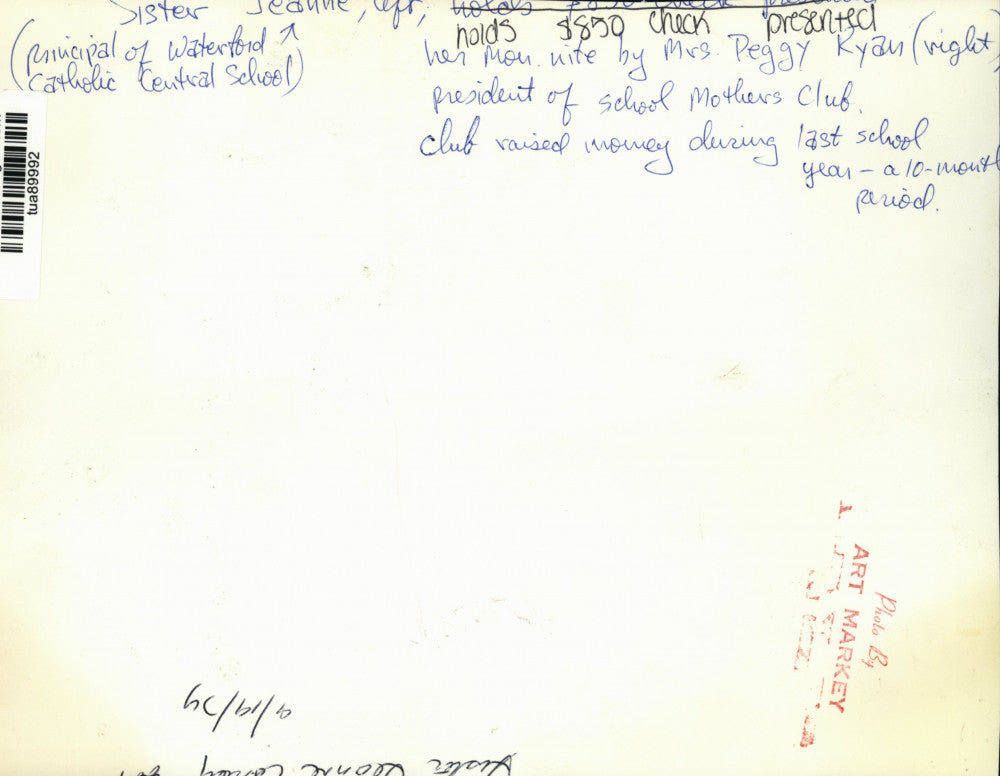 Sister Jeanne, left, holds $850 check presented
holds $850 check presented
(principal of Waterford ↗
Catholic Central School)
her Mon. nite by Mrs. Peggy Ryan (right,
president of school Mothers Club.
Club raised money during last school
year - a 10-month
period.
tua89992
Photo By
ART MARKEY
9/19/74
Sister Jeanne